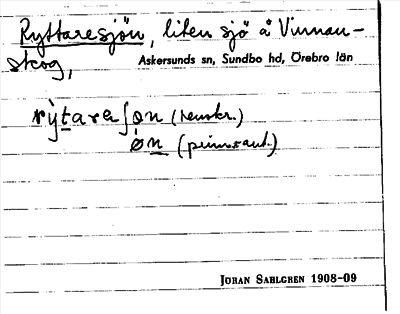 Ryttaresjön, liten sjö å Vinnan-
skog,
Askersunds sn, Sundbo hd, Örebro län
rỳtareʃøn (renskr.)
øn (primrant.)
JOHAN SAHLGREN 1908-09